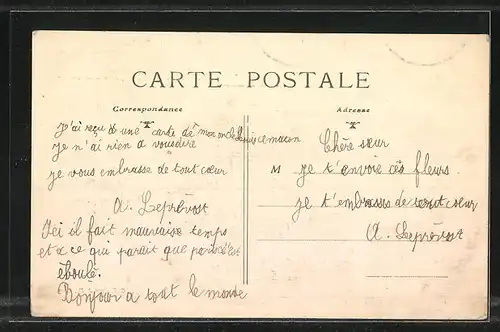 CARTE POSTALE
Correspondance
Adresse
j'ai reçu une carte de mon oncle
je n'ai rien a vousdire
je vous embrasse de tout cœur
A. Leprévost
Ici il fait mauvaise temps
et a ce qui parait que
éboulé.
Bonjour a tout le monde
Chère sœur
M je t'envoie ces fleurs.
je t'embrasse de tout cœur
A. Leprévost